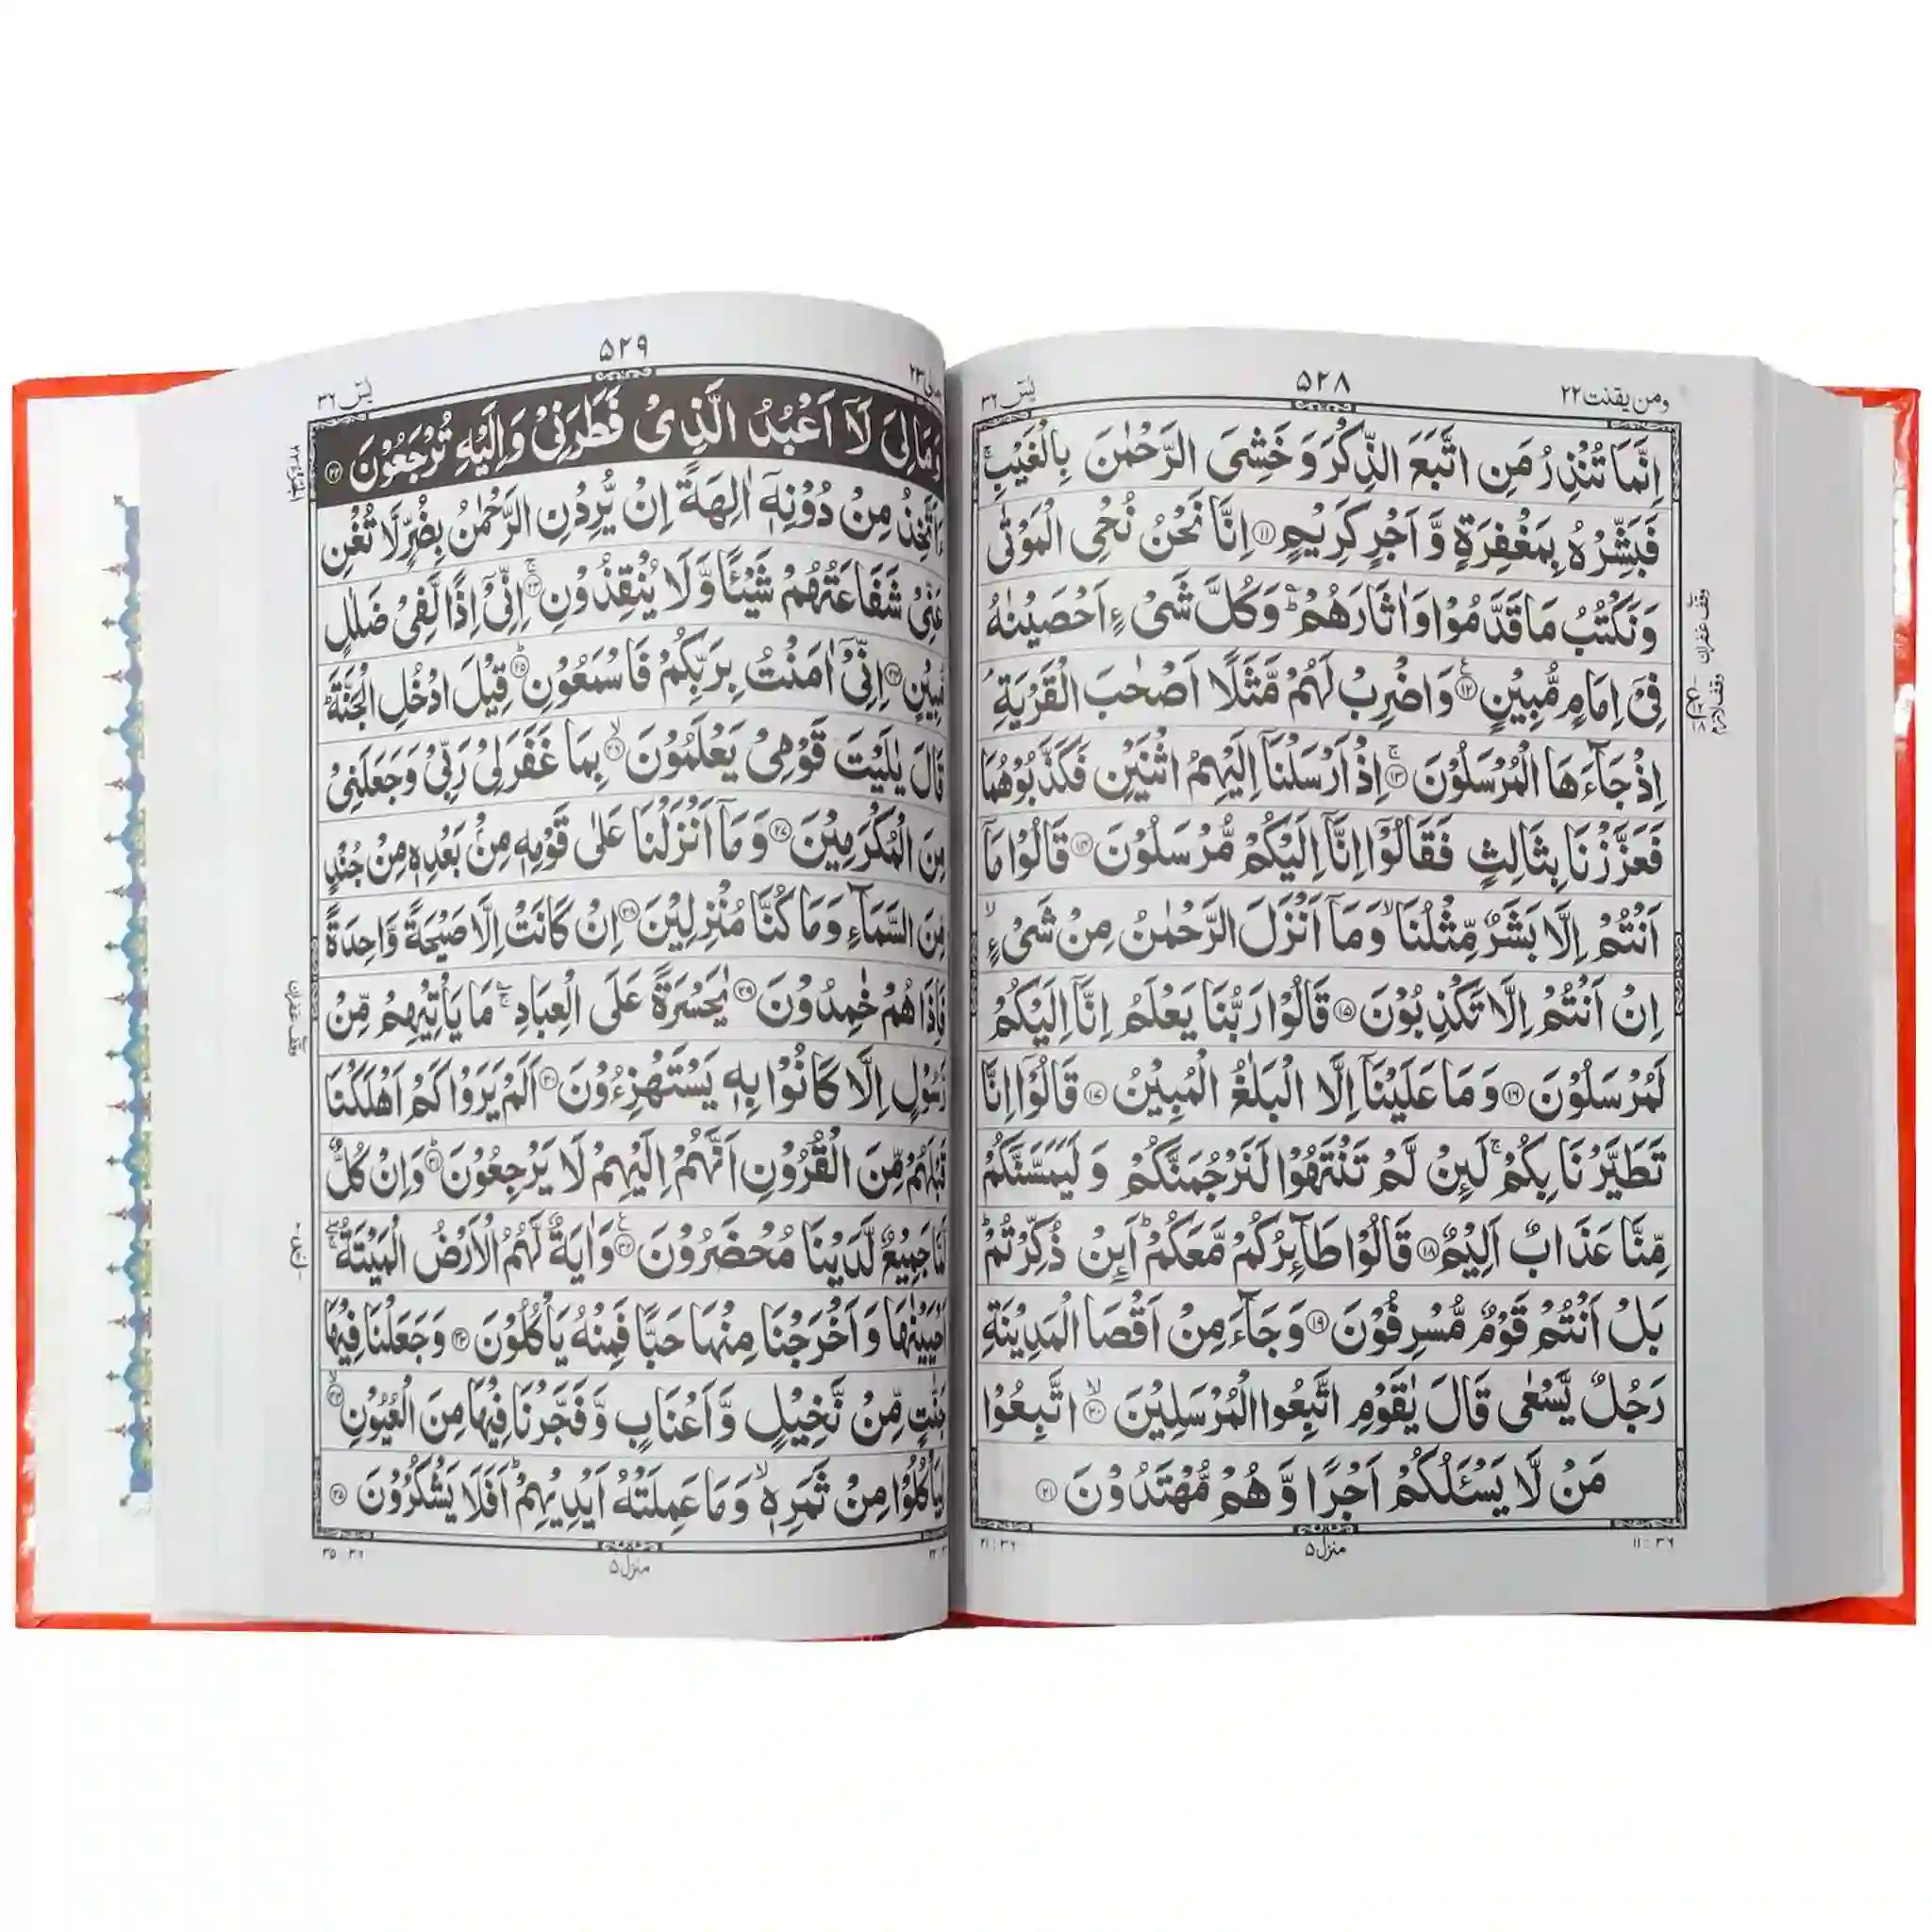 ومن یقنت ۲۲
۵۲۸
یٰسٓ ۳۶
اِنَّمَا تُنْذِرُ مَنِ اتَّبَعَ الذِّكْرَ وَ خَشِیَ الرَّحْمٰنَ بِالْغَیْبِ ۚ
فَبَشِّرْهُ بِمَغْفِرَةٍ وَّ اَجْرٍ كَرِیْمٍ ۝۱۱ اِنَّا نَحْنُ نُحْیِ الْمَوْتٰی
وَ نَكْتُبُ مَا قَدَّمُوْا وَ اٰثَارَهُمْ ؕ وَ كُلَّ شَیْءٍ اَحْصَیْنٰهُ
فِیْۤ اِمَامٍ مُّبِیْنٍ ۝۱۲ وَ اضْرِبْ لَهُمْ مَّثَلًا اَصْحٰبَ الْقَرْیَةِ ۘ
اِذْ جَآءَهَا الْمُرْسَلُوْنَ ۝۱۳ۚ اِذْ اَرْسَلْنَاۤ اِلَیْهِمُ اثْنَیْنِ فَكَذَّبُوْهُمَا
فَعَزَّزْنَا بِثَالِثٍ فَقَالُوْۤا اِنَّاۤ اِلَیْكُمْ مُّرْسَلُوْنَ ۝۱۴ قَالُوْا مَاۤ
اَنْتُمْ اِلَّا بَشَرٌ مِّثْلُنَا ۙ وَ مَاۤ اَنْزَلَ الرَّحْمٰنُ مِنْ شَیْءٍ ۙ
اِنْ اَنْتُمْ اِلَّا تَكْذِبُوْنَ ۝۱۵ قَالُوْا رَبُّنَا یَعْلَمُ اِنَّاۤ اِلَیْكُمْ
لَمُرْسَلُوْنَ ۝۱۶ وَ مَا عَلَیْنَاۤ اِلَّا الْبَلٰغُ الْمُبِیْنُ ۝۱۷ قَالُوْۤا اِنَّا
تَطَیَّرْنَا بِكُمْ ۚ لَىِٕنْ لَّمْ تَنْتَهُوْا لَنَرْجُمَنَّكُمْ وَ لَیَمَسَّنَّكُمْ
مِّنَّا عَذَابٌ اَلِیْمٌ ۝۱۸ قَالُوْا طَآىِٕرُكُمْ مَّعَكُمْ ؕ اَىِٕنْ ذُكِّرْتُمْ ؕ
بَلْ اَنْتُمْ قَوْمٌ مُّسْرِفُوْنَ ۝۱۹ وَ جَآءَ مِنْ اَقْصَا الْمَدِیْنَةِ
رَجُلٌ یَّسْعٰی قَالَ یٰقَوْمِ اتَّبِعُوا الْمُرْسَلِیْنَ ۝۲۰ۙ اتَّبِعُوْا
مَنْ لَّا یَسْـَٔلُكُمْ اَجْرًا وَّ هُمْ مُّهْتَدُوْنَ ۝۲۱
۱۱ : ۳۶
منزل ۵
۲۱ : ۳۶
وقف غفران
وقف لازم
۵۲۹
یٰسٓ ۳۶
وَمَا لِیَ لَاۤ اَعْبُدُ الَّذِیْ فَطَرَنِیْ وَ اِلَیْهِ تُرْجَعُوْنَ ۝۲۲
ءَاَتَّخِذُ مِنْ دُوْنِهٖۤ اٰلِهَةً اِنْ یُّرِدْنِ الرَّحْمٰنُ بِضُرٍّ لَّا تُغْنِ
عَنِّیْ شَفَاعَتُهُمْ شَیْـًٔا وَّ لَا یُنْقِذُوْنِ ۝۲۳ۚ اِنِّیْۤ اِذًا لَّفِیْ ضَلٰلٍ
مُّبِیْنٍ ۝۲۴ اِنِّیْۤ اٰمَنْتُ بِرَبِّكُمْ فَاسْمَعُوْنِ ۝۲۵ؕ قِیْلَ ادْخُلِ الْجَنَّةَ ؕ
قَالَ یٰلَیْتَ قَوْمِیْ یَعْلَمُوْنَ ۝۲۶ۙ بِمَا غَفَرَ لِیْ رَبِّیْ وَ جَعَلَنِیْ
مِنَ الْمُكْرَمِیْنَ ۝۲۷ وَ مَاۤ اَنْزَلْنَا عَلٰی قَوْمِهٖ مِنْۢ بَعْدِهٖ مِنْ جُنْدٍ
مِّنَ السَّمَآءِ وَ مَا كُنَّا مُنْزِلِیْنَ ۝۲۸ اِنْ كَانَتْ اِلَّا صَیْحَةً وَّاحِدَةً
فَاِذَا هُمْ خٰمِدُوْنَ ۝۲۹ یٰحَسْرَةً عَلَی الْعِبَادِ ۚؔ مَا یَاْتِیْهِمْ مِّنْ
رَّسُوْلٍ اِلَّا كَانُوْا بِهٖ یَسْتَهْزِءُوْنَ ۝۳۰ اَلَمْ یَرَوْا كَمْ اَهْلَكْنَا
قَبْلَهُمْ مِّنَ الْقُرُوْنِ اَنَّهُمْ اِلَیْهِمْ لَا یَرْجِعُوْنَ ۝۳۱ؕ وَ اِنْ كُلٌّ
لَّمَّا جَمِیْعٌ لَّدَیْنَا مُحْضَرُوْنَ ۝۳۲ وَ اٰیَةٌ لَّهُمُ الْاَرْضُ الْمَیْتَةُ ۚۖ
اَحْیَیْنٰهَا وَ اَخْرَجْنَا مِنْهَا حَبًّا فَمِنْهُ یَاْكُلُوْنَ ۝۳۳ وَ جَعَلْنَا فِیْهَا
جَنّٰتٍ مِّنْ نَّخِیْلٍ وَّ اَعْنَابٍ وَّ فَجَّرْنَا فِیْهَا مِنَ الْعُیُوْنِ ۝۳۴ۙ
لِیَاْكُلُوْا مِنْ ثَمَرِهٖ ۙ وَ مَا عَمِلَتْهُ اَیْدِیْهِمْ ؕ اَفَلَا یَشْكُرُوْنَ ۝۳۵
منزل ۵
۳۵ : ۳۶